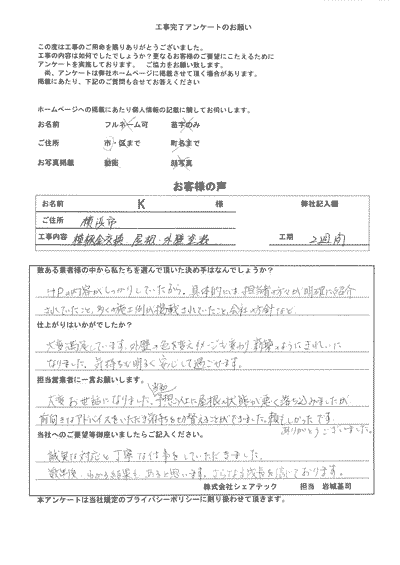 工事完了アンケートのお願い
この度は工事のご用命を賜りありがとうございました。
工事の内容は如何でしたでしょうか?更なるお客様のご要望にこたえるために
アンケートを実施しております。 ご協力をお願い致します。
尚、アンケートは弊社ホームページに掲載させて頂く場合があります。
掲載にあたり、下記のご質問も合せてお答えください
ホームページへの掲載にあたり個人情報の記載に関してお伺いします。
お名前 フルネーム可 苗字のみ
ご住所 市・区まで 町名まで
お写真掲載 動画 顔写真
お客様の声
お名前 K 様 弊社記入欄
ご住所 横浜市
工事内容 棟板金交換 屋根・外壁塗装 工期 2週間
数ある業者様の中から私たちを選んで頂いた決め手はなんでしょうか?
HPの内容がしっかりしていたから。具体的には、担当者の方々が明確に紹介
されていたこと、多くの施工例が掲載されていたこと、会社の方針など
仕上がりはいかがでしたか?
大変満足しています。外壁の色を変えイメージも変わり新築のようにきれいに
なりました。気持ちも明るく安心して過ごせます。
担当営業者に一言お願いします。
大変お世話になりました。予想以上に屋根の状態が悪く落ち込みましたが
前向きなアドバイスをいただき気持ちを切り替えることができました。頼もしかったです。
ありがとうございました。
当社へのご要望等御座いましたらご記入ください。
誠実な対応と丁寧な仕事をしていただきました。
数年後、わかる結果もあると思います。さらなる成長を信じております。
株式会社シェアテック 担当 岩城基司
本アンケートは当社規定のプライバシーポリシーに則り扱わせて頂きます。